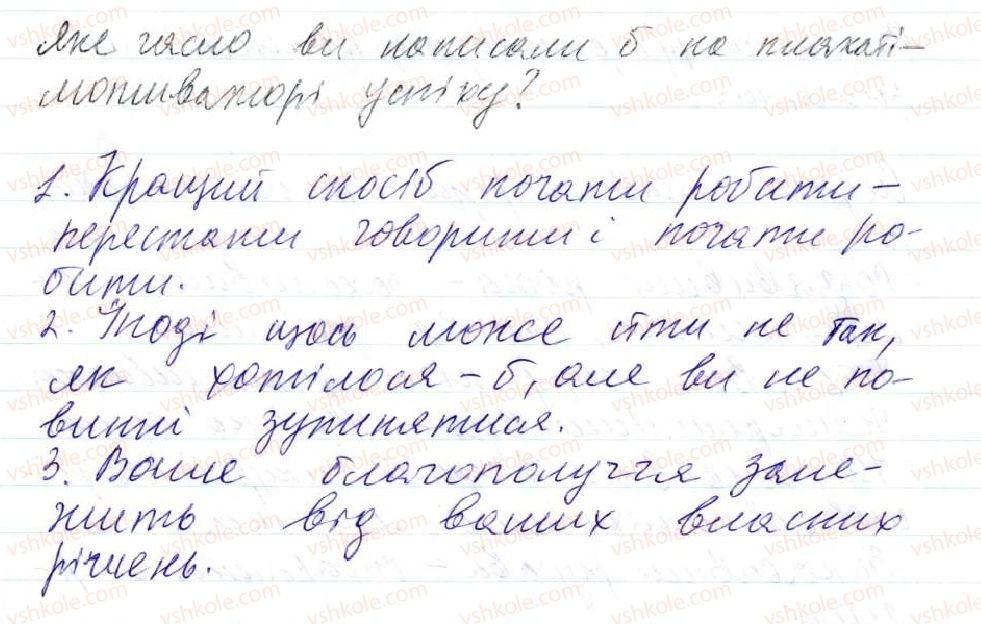 Яке гасло ви написали б на плакаті-
мотиваторі успіху?
1. Кращий спосіб почати робити -
перестати говорити і почати ро-
бити.
2. Іноді щось може йти не так,
як хотілося-б, але ви не по-
винні зупинятися.
3. Ваше благополуччя зале-
жить від ваших власних
рішень.